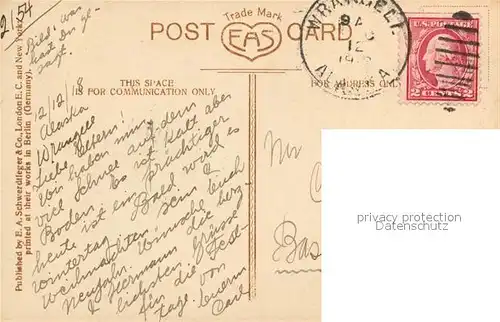 2.54
Bild, was
hast Du ge-
sagt.
POST CARD
Trade Mark
EAS
WRANGELL
12
ALASKA
U.S. POSTAGE
2 CENTS 2
THIS SPACE
IS FOR COMMUNICATION ONLY
FOR ADDRESS ONLY
Published by E. A. Schwerdtfeger & Co., London E. C. and New York,
printed at their works in Berlin (Germany).
12/12/18
Wrangell Alaska
Liebe Eltern!
Wir haben nun dem
viel Schnee auf dem aber
Boden. Es ist kalt
heute ist ein prächtiger
Wintertag. Bald wird es
Weihnachten sein &
Neujahr. Wünsche Euch
& Hermann die herz-
lichsten Grüsse
für die Fest-
tage von
Euerm
Carl
privacy protection
Datenschutz